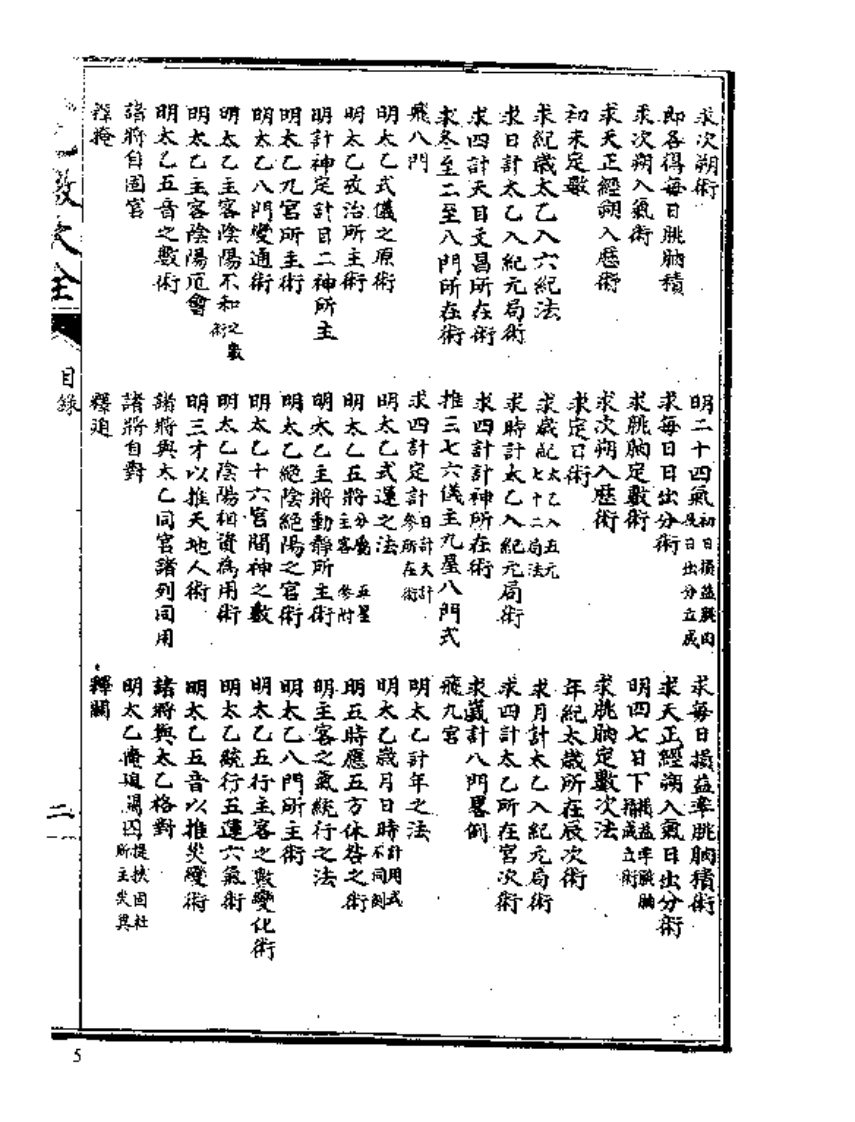 求次朔術　明二十四氣初日損益朓朒及日出分立成　求每日損益率朓朒積術
即各得每日朓朒積　求每日日出分術　求天正經朔入氣日出分術
求次朔入氣術　求朓朒定數術　明四七日下損益率朓朒積成立術
求天正經朔入歷術　求次朔入歷術　求朓朒定數次法
初末定數　求定日術　年紀太歲所在辰次術
求紀歲太乙入六紀法　求歲紀太乙入五元七十二局法　求月計太乙入紀元局術
求日計太乙入紀元局術　求時計太乙入紀元局術　求四計太乙所在宮次術
求四計天目文昌所在術　求四計計神所在術　求歲計八門畧例
求冬至二至八門所在術　推三七六儀主九星八門式　飛九宮
飛八門　求四計定計目計大計參所在術　明太乙計年之法
明太乙式儀之原術　明太乙式運之法　明太乙歲月日時計用式不同例
明太乙攷治所主術　明太乙五將分屬五星主客參附　明五時應五方休咎之術
明計神定計目二神所主　明太乙主將動靜所主術　明主客之氣統行之法
明太乙九宮所主術　明太乙絕陰絕陽之宮術　明太乙八門所主術
明太乙八門變通術　明太乙十六宮間神之數　明太乙五行主客之數變化術
明太乙主客陰陽不和之數術　明太乙陰陽相資為用術　明太乙統行五運六氣術
明太乙主客陰陽厄會　明三才以推天地人術　明太乙五音以推災變術
明太乙五音之數術　諸將與太乙同宮諸列同用　諸將與太乙格對
諸將自固宮　諸將自對　明太乙掩迫關囚提挾固杜所主災異
釋掩　釋迫　釋關
乙數大全　目錄　二
5